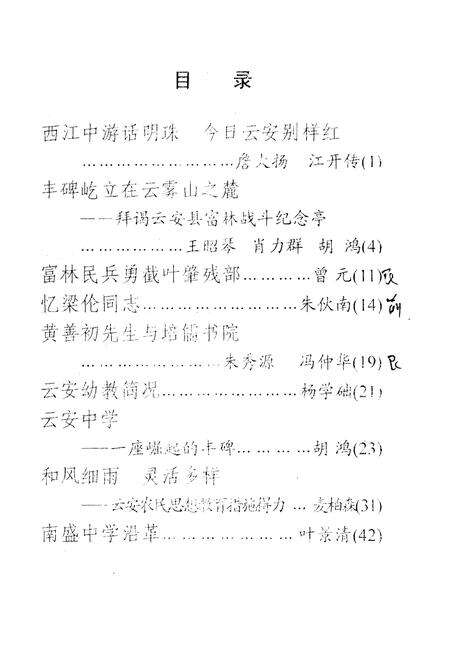 目 录
西江中游话明珠 今日云安别样红
………………………詹火扬 江开传(1)
丰碑屹立在云雾山之麓
——拜谒云安县富林战斗纪念亭
………………王昭琴 肖力群 胡 鸿(4)
富林民兵勇截叶肇残部…………曾 元(11)
忆梁伦同志…………………………朱伙南(14)
黄善初先生与培儒书院
……………………朱秀源 冯仲华(19)
云安幼教简况………………………杨学础(21)
云安中学
——一座崛起的丰碑…………胡 鸿(23)
和风细雨 灵活多样
——云安农民思想教育措施得力…麦柏森(31)
南盛中学沿革………………………叶景清(42)